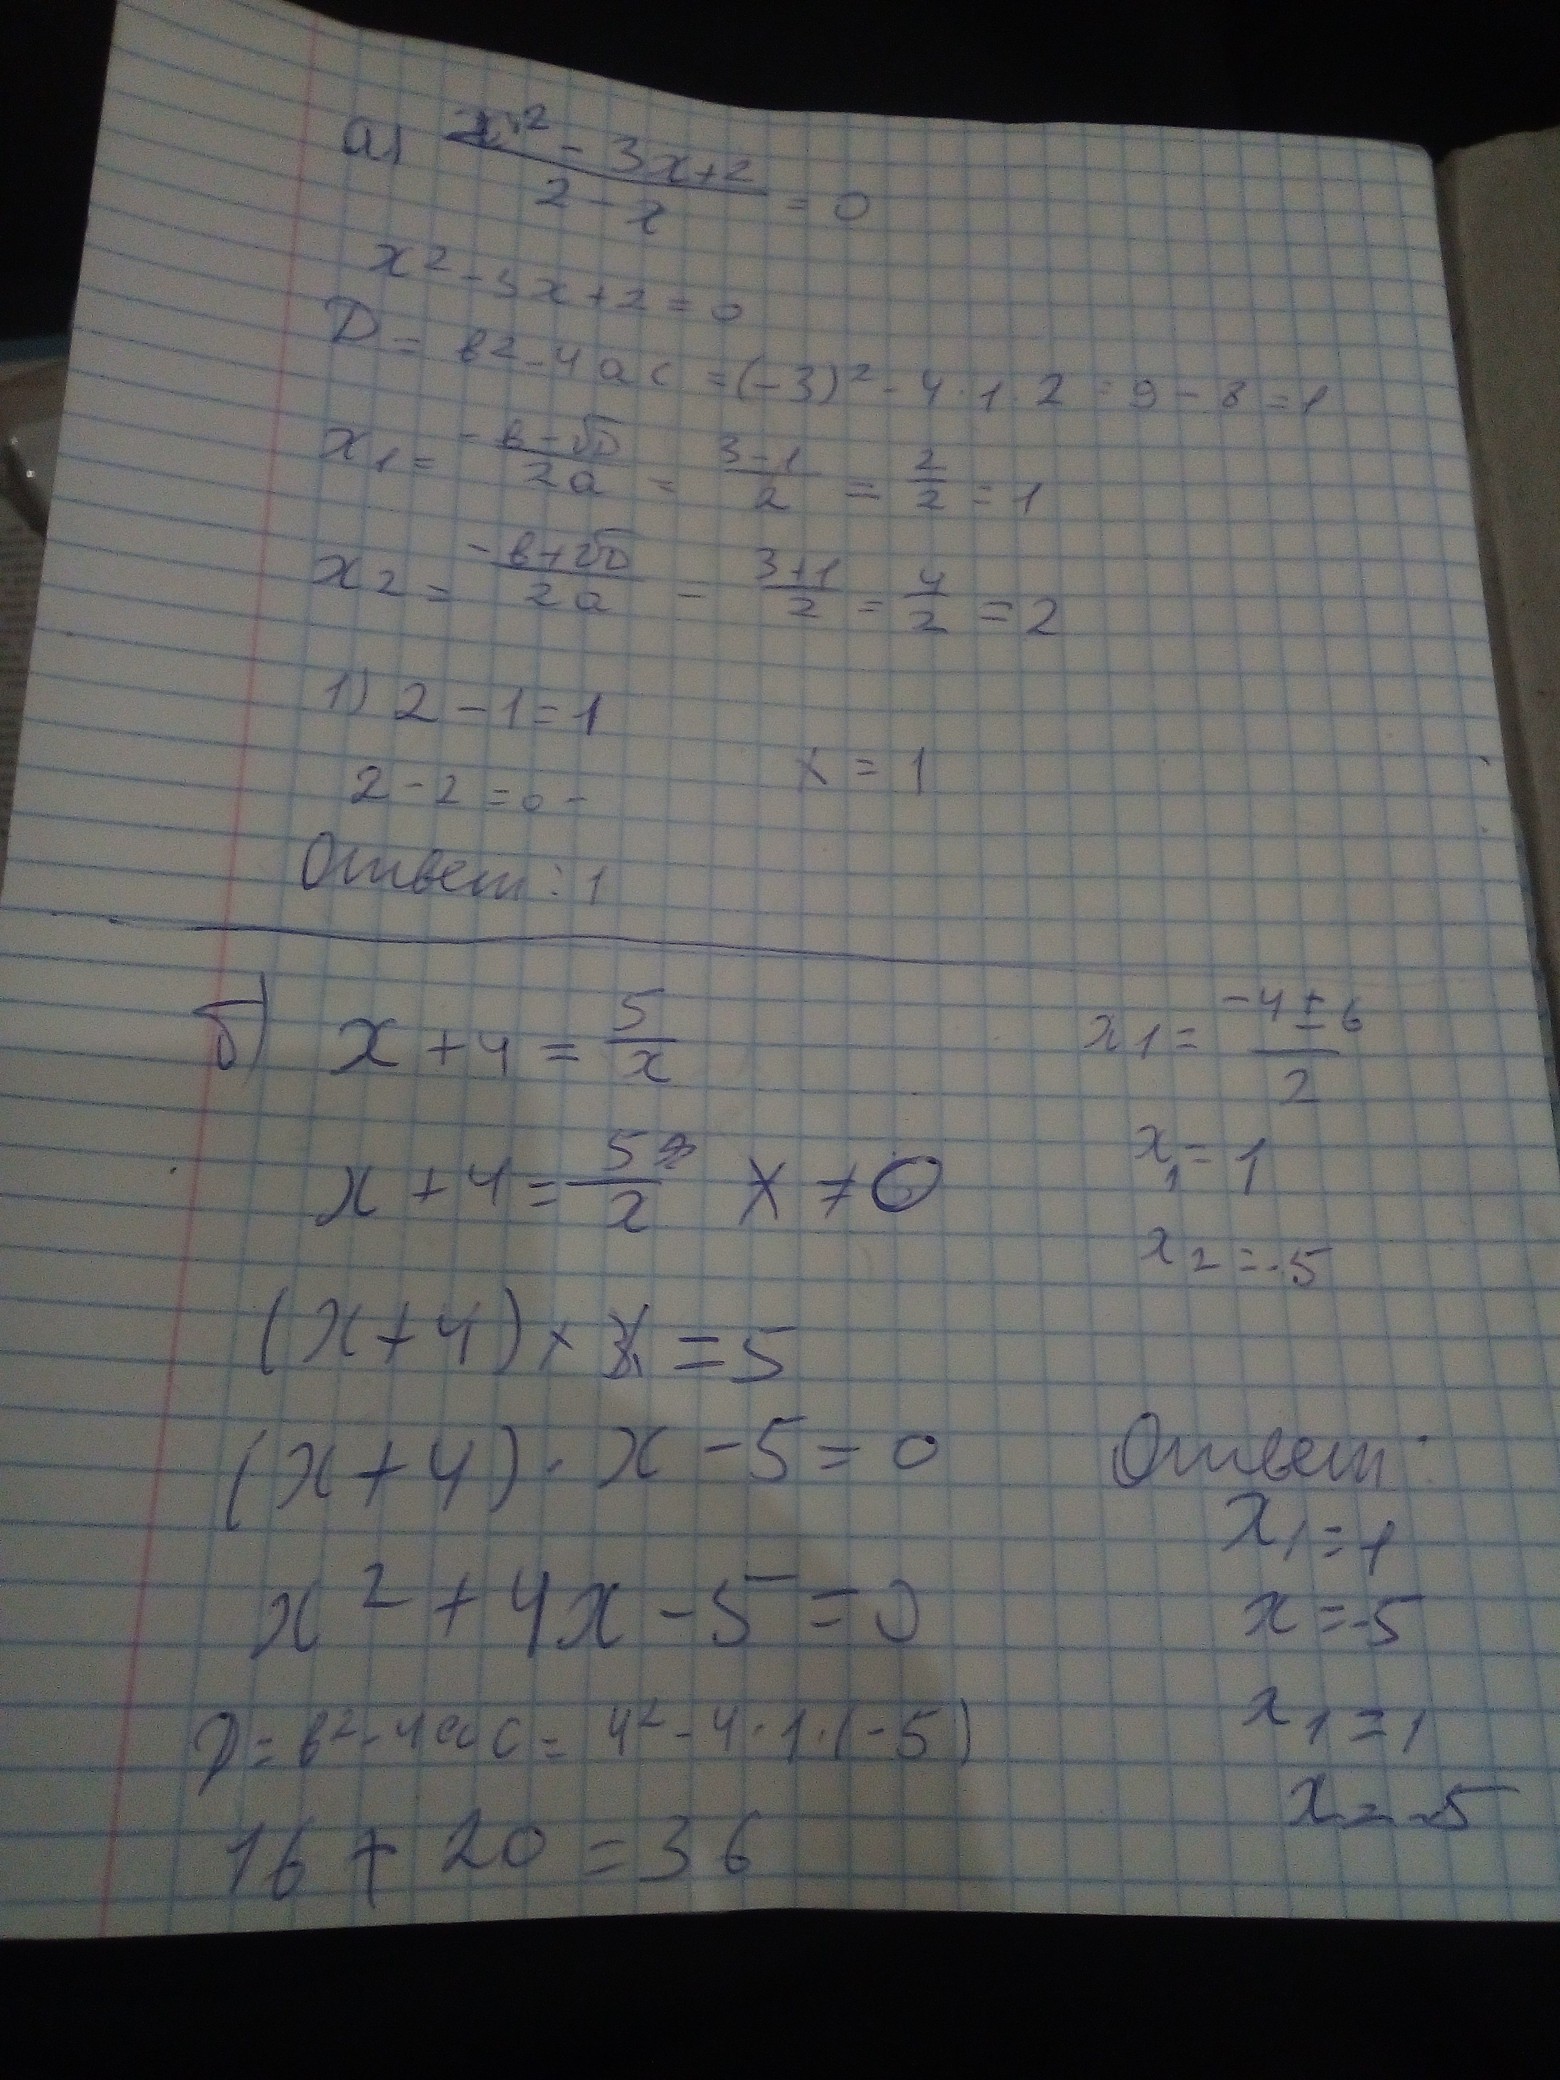 а) x² - 3x+2 / 2 - x = 0
x² - 3x + 2 = 0
D = в² - 4ac = (-3)² - 4 · 1 · 2 = 9 - 8 = 1
x1 = -в-√D / 2a = 3-1 / 2 = 2/2 = 1
x2 = -в+√D / 2a = 3+1 / 2 = 4/2 = 2
1) 2 - 1 = 1
2 - 2 = 0 -
x = 1
Ответ: 1
б) x + 4 = 5/x
x + 4 = 5/x x ≠ 0
(x+4) × x = 5
(x+4) · x - 5 = 0
x² + 4x - 5 = 0
D = в² - 4ac = 4² - 4 · 1 · (-5)
16 + 20 = 36
x1 = -4 ± 6 / 2
x1 = 1
x2 = -5
Ответ:
x1 = 1
x = -5
x1 = 1
x = -5